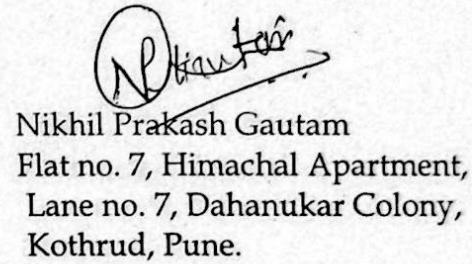 NPGautam
Nikhil Prakash Gautam
Flat no. 7, Himachal Apartment,
Lane no. 7, Dahanukar Colony,
Kothrud, Pune.